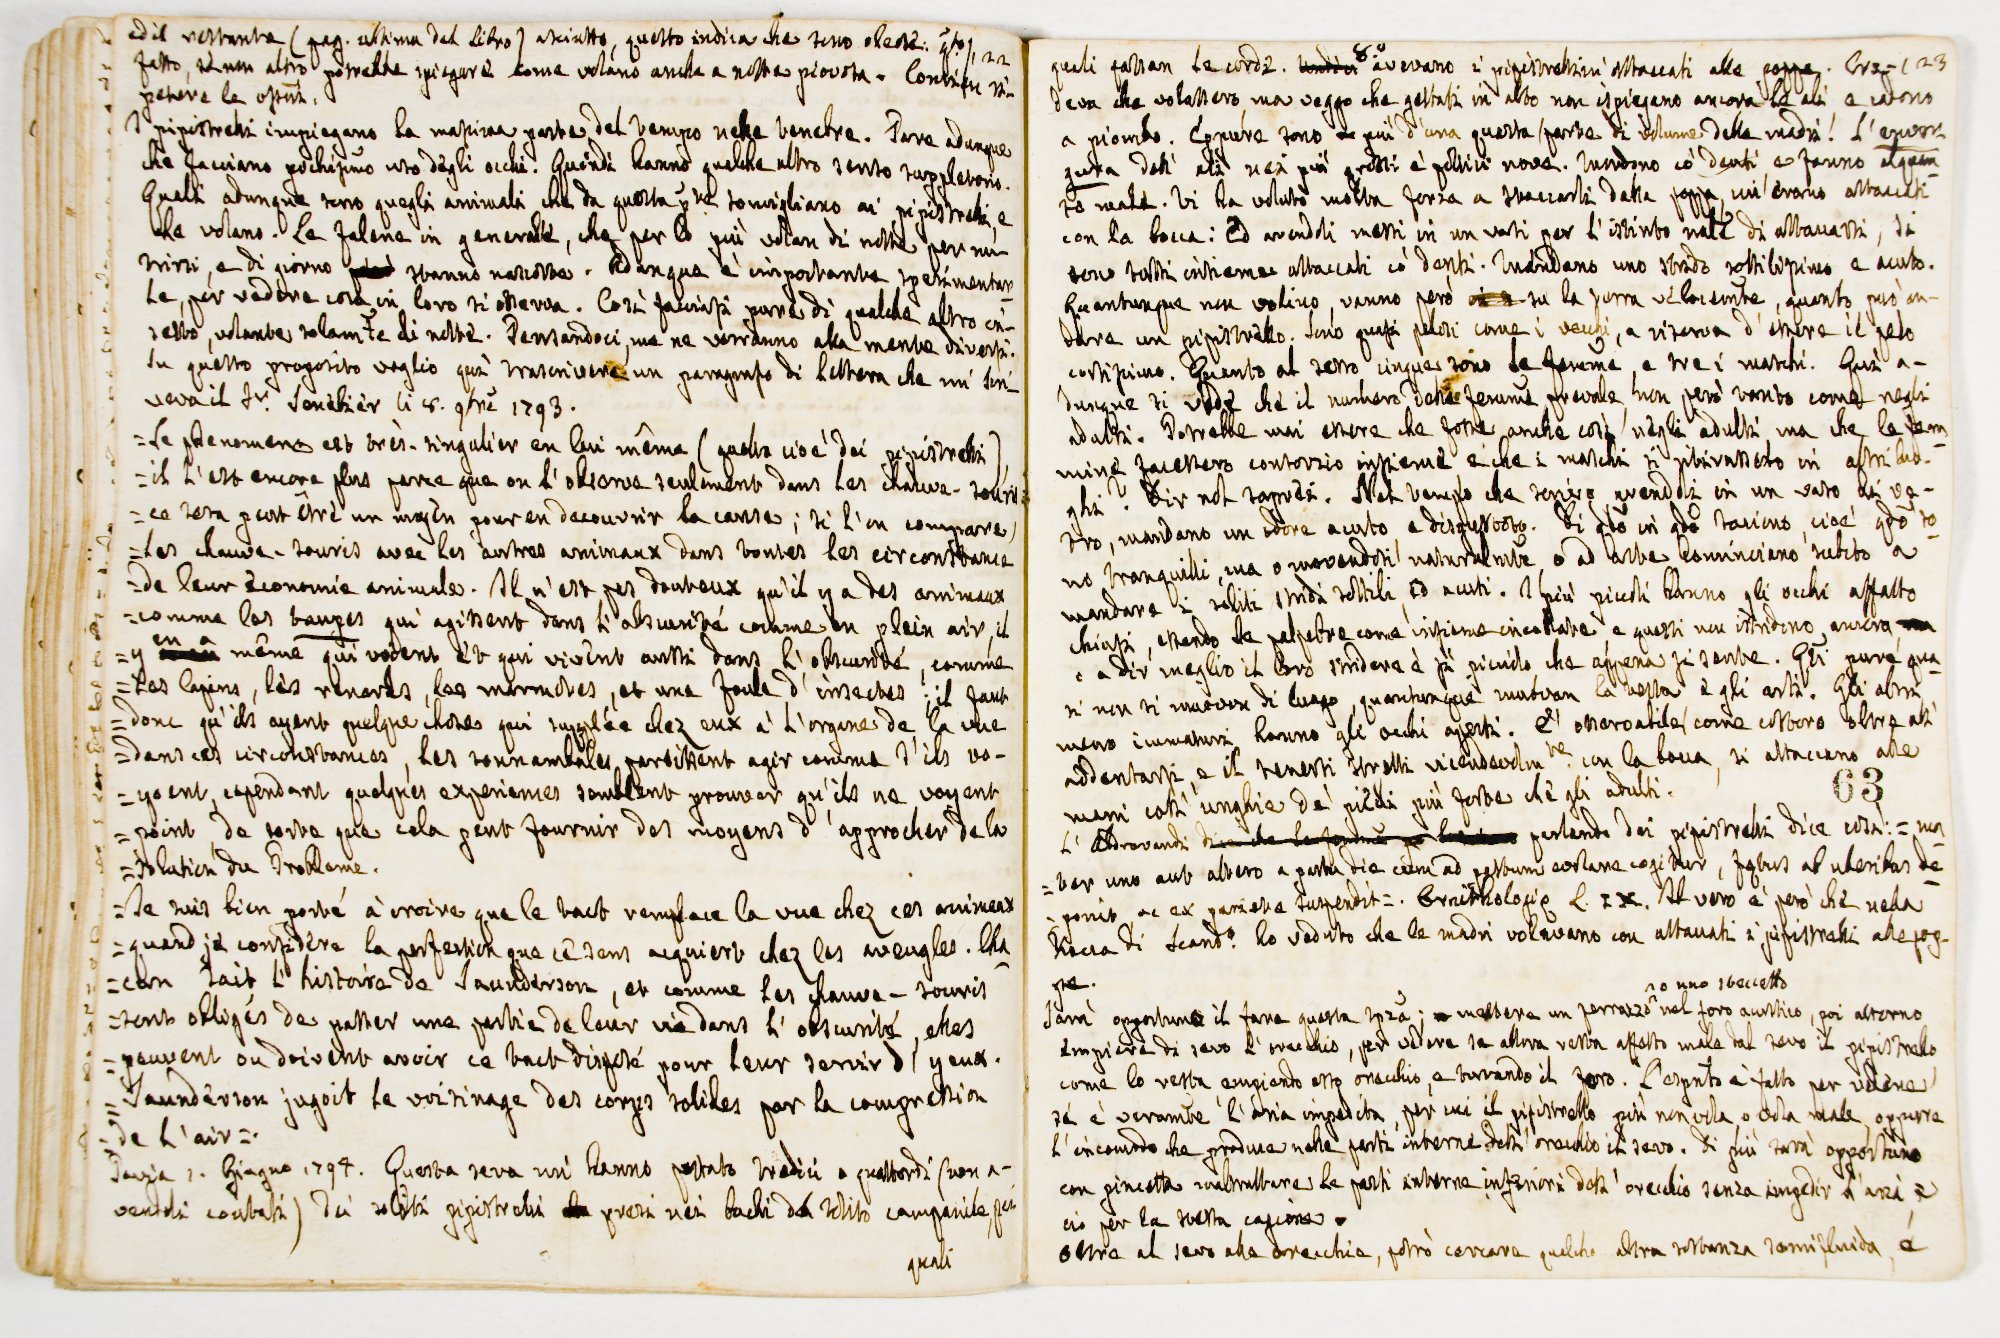 ed il restante (pag. ultima del Libro) asciutto, questo indica che sono oleose: qto 122
fatto, se non altro potrebbe spiegare come volano anche a notte piovosa. Convien ri-
petere le ossni.
I pipistrelli impiegano la massima parte del tempo nelle tenebre. Pare adunque
che facciano pochissimo uso degli occhi. Quindi hanno qualche altro senso suppletorio.
Quali adunque sono quegli animali che da questa pte somigliano ai pipistrelli, e
che volano. Le falene in generale, che per lo più volan di notte per nu-
trirsi, e di giorno stanno nascoste. Adunque è importante sperimentar-
le, per vedere cosa in loro si osserva. Così facciasi pure di qualche altro in-
setto, volante solamte di notte. Pensandoci, me ne verranno alla mente diversi.
Su questo proposito voglio quì trascrivere un paragrafo di lettera che mi scri-
veva il Sr. Senebier li 8. 9bre 1793.
=Le phenomene est très-singulier en lui même (quello cioè dei pipistrelli)
=il l'est encore plus parce que on l'observe seulement dans les chauve-souris
=ce sera peut être un moyen pour en decouvrir la cause; si l'on compare
=les chauve-souris avec les autres animaux dans toutes les circonstance
=de leur économie animale. Il n'est pas douteux qu'il y a des animaux
=comme les taupes qui agissent dans l'obscurité comme en plein air, il
=y en a même qui voient et qui vivent aussi dans l'obscurité, comme
=les lapins, les renards, les marmottes, et une foule d'insectes; il faut
=donc qu'ils ayent quelque chose qui supplée chez eux à l'organe de la vue
=dans ces circonstances, les sonnambules paroissent agir comme s'ils vo-
=yoent, cependant quelques experiences semblent prouver qu'ils ne voyent
=point, de sorte que cela peut fournir des moyens d'approcher de la
=solution du Probleme.
=Je suis bien porté à croire que le tact remplace la vue chez ces animaux
=quand je considère la perfection que ce sens acquiert chez les aveugles. Cha
=cun sait l'histoire de Saunderson, et comme les chauve-souris
=sont obligés de passer une partie de leur vie dans l'obscurité, elles
=peuvent ou doivent avoir ce tact disposé pour leur servir d'yeux.
=Saunderson jugoit le voisinage des corps solides par la compression
=de l'air=.
Pavia 1. Giugno 1794. Questa sera mi hanno portato tredici o quattordici (non a-
vendoli contati) dei soliti pipistrelli presi nei buchi del solito campanile, pei
quali
quali passan le corde. 8.o avevano i pipistrellini attaccati alle poppe. Cre- (23
deva che volassero ma veggo che gettati in alto non ispiegano ancora le ali e cadono
a piombo. Eppure sono più d'una quarta parte di volume delle madri! L'
gura dell'ali nei più grossi è pollici nove. Mordono co' denti e fanno alquan-
to male. Vi ha voluto molta forza a staccarli dalla poppa, cui erano attaccati
con la bocca: Ed avendoli messi in un vaso per l'istinto nale di attaccarsi, si
sono tutti insieme attaccati co' denti. Mandano uno strido sottilissimo e acuto.
Quantunque non volino, vanno però su la terra velocemte, quanto può an-
dare un pipistrello. Sono quasi pelosi come i vecchi, a riserva d'essere il pelo
cortissimo. Quanto al sesso cinque sono le femine, e tre i maschi. Quì a-
dunque si vede che il numero delle femine prevale, non però tanto come negli
adulti. Potrebbe mai essere che fosse anche così negli adulti, ma che le fem-
mine facessero consorzio insieme e che i maschi si ritirassero in altri luo-
ghi? Dir nol saprei. Nel tempo che scrivo avendoli in un vaso di ve-
tro, mandano un odore acuto, e disgustoso. Di qdo in qdo tacciono, cioè qdo so-
no tranquilli, ma o movendosi naturalmte o ad arte cominciano subito a
mandare i soliti stridi sottili, ed acuti. I più piccoli hanno gli occhi affatto
chiusi, essendo le palpebre come insieme incollate, e questi non istridono, ancora
o a dir meglio il loro stridere è sì picciolo che appena si sente. Gli pure qua-
si non si muovon di luogo, quantunque muovan la testa e gli arti. Gli altri
meno immaturi hanno gli occhi aperti. E' osservabile come costoro oltre all'
addentarsi, e il tenersi stretti vicendevolmte con la bocca, si attaccano alle
mani coll'unghie de' piedi più forte che gli adulti.
63
L'Aldrovandi parlando dei pipistrelli dice così: =
=ter uno aut altero a partu die cum ad pastum evolare cogitur, foetus ab uberibus de-
=ponit, ac ex pariete suspendit=. Ornithologie L. IX. Il vero è però che nella
Rocca di Scando. ho veduto che le madri volavano con attaccati i pipistrelli alle pop-
pe.
Sarà opportuno il fare questa spza; mettere un pezzazzo o uno steccetto nel foro acustico, poi attorno
empiere di sevo l'orecchio, per vedere se allora resta affetto male dal sevo il pipistrello
come lo resta empiendo esso orecchio, e turando il foro. L'espnto è fatto per vedere
se è veramte l'aria impedita, per cui il pipistrello più non vola, o vola male, oppure
l'incomodo che produce nelle parti interne dell'orecchio il sevo. Di più sarà opportuno
con pincetta maltrattare le parti interne inferiori dell'orecchio senza impedir l'aria, e
ciò per la stessa cagione.
Oltre al sevo alle orecchie, potrò cercare qualche altra sostanza semifluida, e